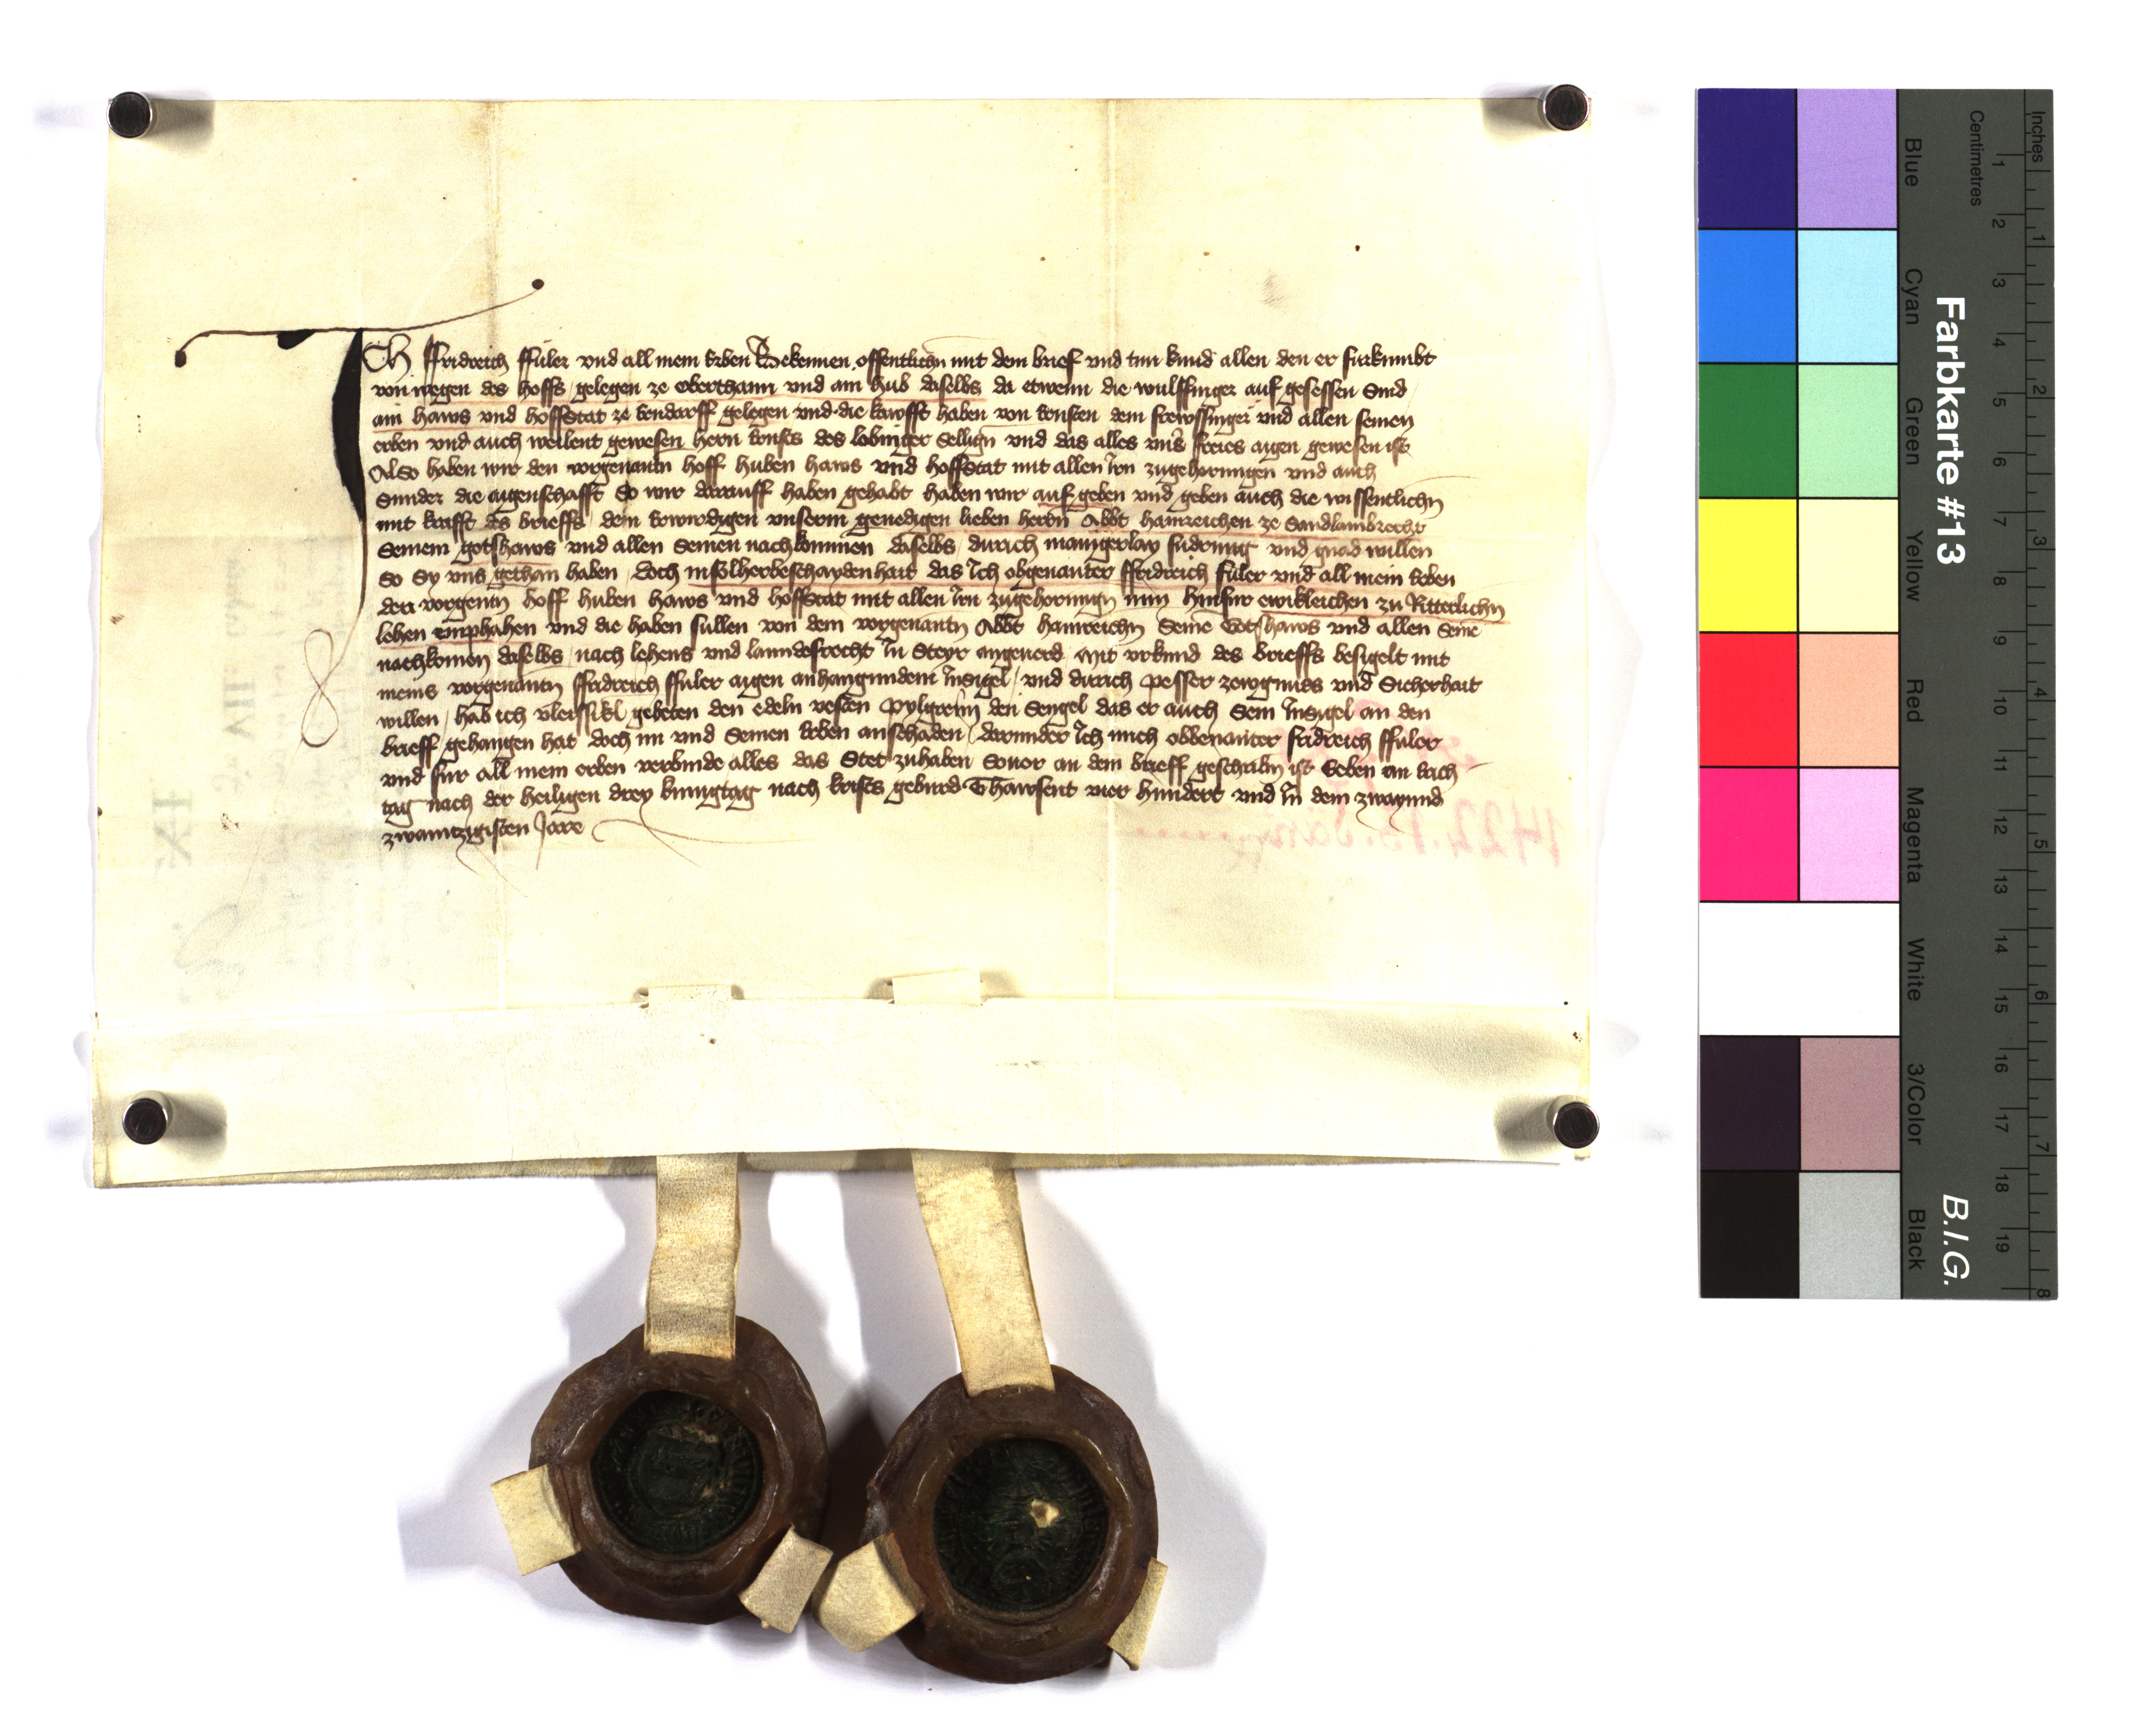 Ich ffridreich ffuler vnd all mein erben Bekennen offentlichn mit dem brief vnd tun kund allen den er furkumbt
von wegen des hoffs gelegen ze oberthann vnd am hub daselbs da etwenn die wulffinger auf gesessen Sind
am haws vnd hoffstat ze kendorff gelegen vnd die kawfft haben von kunsten dem frewssinger vnd allen seinen
erben vnd auch weilent gewesen hern des lobinger Selign vnd das alles vns freies aigen gewesen ist
Also haben wir den vorgenantn hoff huben haws vnd hoffstat mit allen irn zugehorungen vnd auch
Sunder die aigenschafft So wir darauff haben gehabt haben wir auf geben vnd geben auch die wissentlichn
mit krafft des brieffs dem erwirdigen vnserm genedigen lieben herrn Abbt hainreichen ze Sandlambrecht
Seinem gotshaws vnd allen Seinen nachkommen daselbs durich manigerlay fudrung vnd gnad willen
So Sy vns gethan haben doch in solher beschaydenhait das Ich obgenanter ffridreich fuler vnd all mein erben
den vorgentn hoff huben haws vnd hoffstat mit allen irn zugehorungn nun hinfur ewikleichen zu Ritterlichn
lehen emphahen vnd die haben sullen von dem vorgenantn Abbt hainreichn Seine Gotshaws vnd allen Seine
nachkomen daselbs nach lehens vnd lanndesrecht In Steyr angeuerd Mit vrkund des brieffs besigelt mit
meins vorgenantn ffridreich ffuler aigen anhangundem Insigel vnd durich pesser zewgnuss vnd Sicherhait
willen hab ich vleissikl gebeten den edeln vesten pylgreim den Sengel das er auch Sein Insigel an den
brieff gehangen hat doch im vnd Seinen erben an schaden darunder Ich mich obbenanter fridreich ffuler
vnd fur all mein erben verbinde alles das Stet zuhaben Souor an dem brieff geschribn ist Geben an
tag nach der heiligen drey kunigtag nach krists geburd Thawsent vier hundert vnd In dem zwayund
zwaintzigisten Jare
Farbkarte #13
B.I.G.
Inches
Centimetres
1 2 3 4 5 6 7 8
1 2 3 4 5 6 7 8 9 10 11 12 13 14 15 16 17 18 19
Blue
Cyan
Green
Yellow
Red
Magenta
White
3/Color
Black